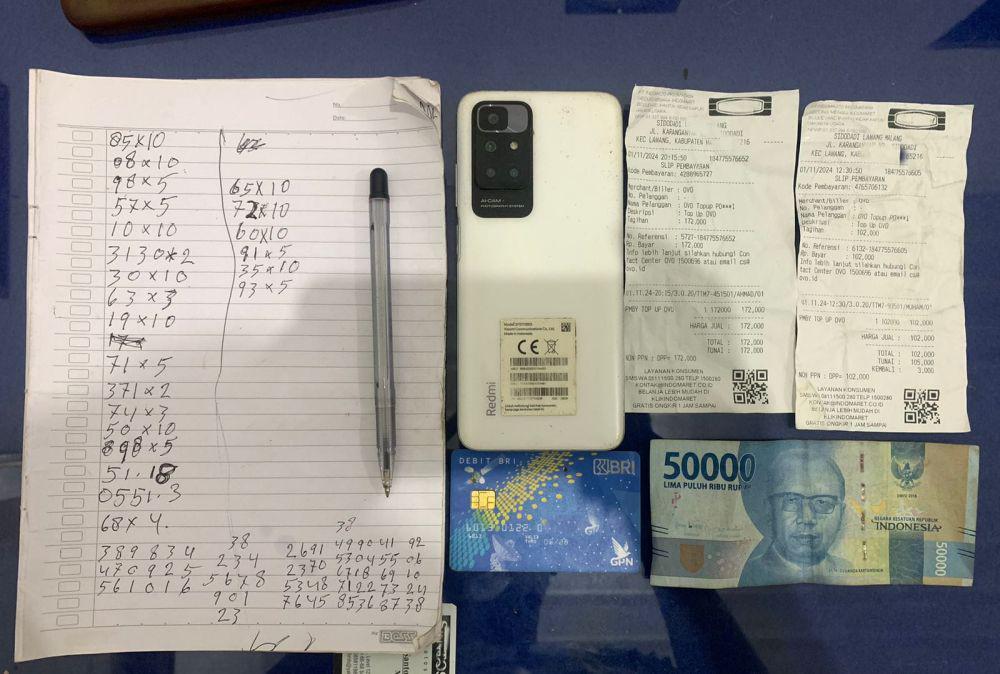 No.
Date:
85x10
08x10
98x5
57x5
10x10
3130x2
30x10
63x3
19x10
71x5
371x2
74x3
50x10
898x5
51.18
0551.3
68x4.
65x10
72x10
60x10
91x5
35x10
93x5
389834
470925
561016
38
234
5678
901
23
38
2691 499041 92
2370 570455 06
5348 712273 24
7645 853687 38
BOSS
AI CAM
Redmi
CE
SIDODADI
JL. KARANGAN
KEC LAWANG, KABUPATEN
01/11/2024 20:15:50 184775576652
SLIP PEMBAYARAN
Kode Pembayaran: 4288965727
Merchant/Biller : OVO
No. Pelanggan : -
Nama Pelanggan : OVO Topup PO***1
Deskripsi : Top Up OVO
Tagihan : 172,000
No. Referensi : 5727-184775576652
Rp. Bayar : 172,000
Info lebih lanjut silahkan hubungi Con
tact Center OVO 1500696 atau email cs@
ovo.id
01.11.24-20:15/3.0.20/TTM7-451501/AHMAD/01
PMBY TOP UP OVO 1 172000 172,000
HARGA JUAL : 172,000
TOTAL : 172,000
TUNAI : 172,000
NON PPN : DPP= 172,000
LAYANAN KONSUMEN
SMS/WA 08111500 280 TELP 1500280
KONTAK@INDOMARET.CO.ID
BELANJA LEBIH MUDAH DI
KLIKINDOMARET
GRATIS ONGKIR 1 JAM SAMPAI
SIDODADI LAWANG MALANG
JL. KARANGAN
KEC LAWANG, 65216
01/11/2024 12:30:50 184757577605
SLIP PEMBAYARAN
Kode Pembayaran: 4765706132
Merchant/Biller : OVO
No. Pelanggan : -
Nama Pelanggan : OVO Topup PO***1
Deskripsi : Top Up OVO
Tagihan : 102,000
No. Referensi : 6132-184757577605
Rp. Bayar : 102,000
Info lebih lanjut silahkan hubungi Con
tact Center OVO 1500696 atau email cs@
ovo.id
PMBY TOP UP OVO 1 102000 102,000
HARGA JUAL : 102,000
TOTAL : 102,000
TUNAI : 105,000
KEMBALI : 3,000
NON PPN : DPP= 102,000
LAYANAN KONSUMEN
SMS/WA 08111500 280 TELP 1500280
KONTAK@INDOMARET.CO.ID
BELANJA LEBIH MUDAH DI
KLIKINDOMARET
GRATIS ONGKIR 1 JAM SAMPAI
DEBIT BRI
BRI
GPN
50000
LIMA PULUH RIBU RUPIAH
NEGARA KESATUAN REPUBLIK
INDONESIA
50000